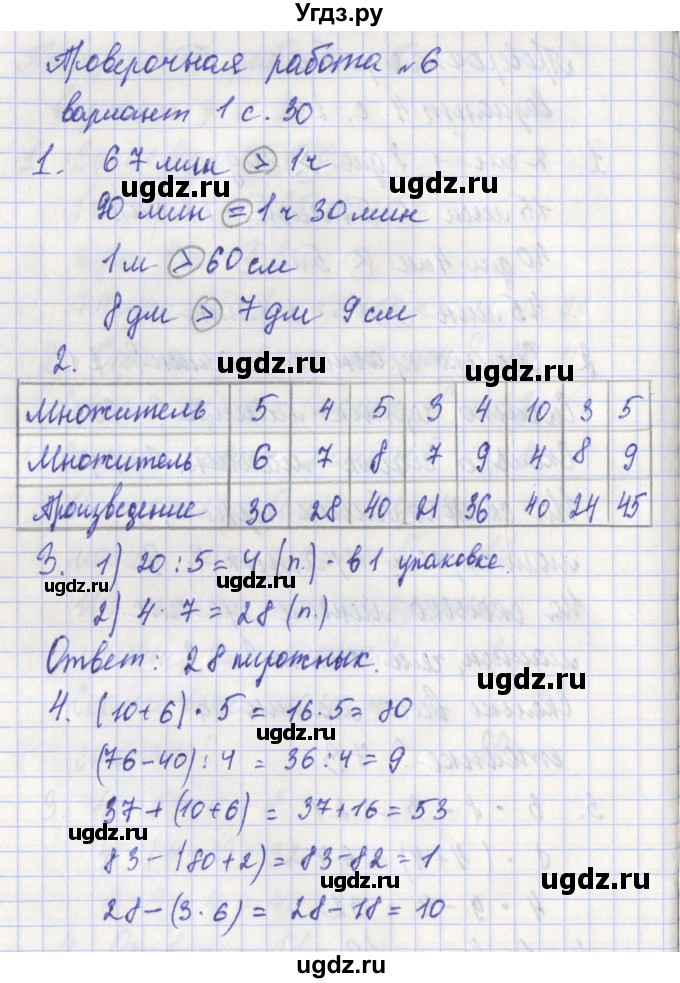 Угдз.ру
Проверочная работа №6
вариант 1 с. 30
1. 67 мин > 1 ч
ugdz.ru
90 мин = 1 ч 30 мин
ugdz.ru ugdz.ru
1 м > 60 см
8 дм > 7 дм 9 см
ugdz.ru
2.
ugdz.ru
Множитель 5 4 5 3 4 10 3 5
ugdz.ru
Множитель 6 7 8 7 9 4 8 9
ugdz.ru
Произведение 30 28 40 21 36 40 24 45
ugdz.ru
3. 1) 20 : 5 = 4 (п.) - в 1 упаковке.
ugdz.ru ugdz.ru
2) 4 · 7 = 28 (п.)
ugdz.ru
Ответ: 28 пирожных.
ugdz.ru
4. (10+6) · 5 = 16·5 = 80
ugdz.ru
(76-40) : 4 = 36 : 4 = 9
37+(10+6) = 37+16 = 53
ugdz.ru
83-(80+2) = 83-82 = 1
ugdz.ru
28-(3·6) = 28-18 = 10
ugdz.ru
ugdz.ru